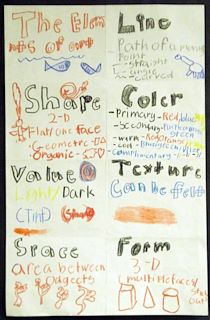 The Elem
nts of art
Line
Path of a moving
Point
- straight
- angle
- curved
Shape
2-D
Flat/one face
Geometric-
Organic-
Color
-Primary-Red, blue,
-Secondary-
green
-warm-Red,orange
-cool-Blue,green,
Complimentary-
Value
Light/Dark
(Tint)
Texture
Can be felt
Space
area between
objects
Form
3-D
multiple faces